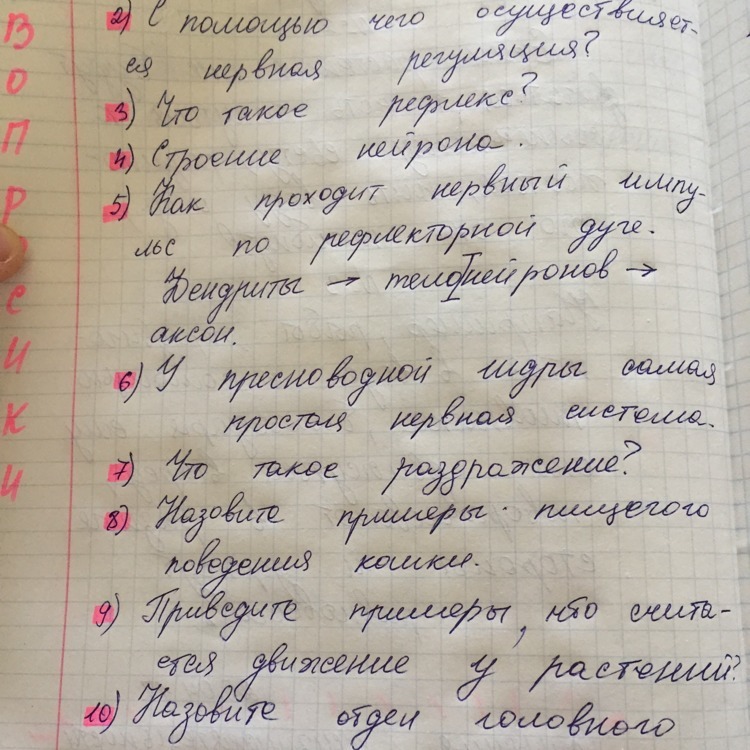 В
О
П
Р
С
И
К
И
2) С помощью чего осуществляет-
ся нервная регуляция?
3) Что такое рефлекс?
4) Строение нейрона.
5) Как проходит нервный импу-
льс по рефлекторной дуге.
Дендриты → тело нейронов →
аксон.
6) У пресноводной гидры самая
простая нервная система.
7) Что такое раздражение?
8) Назовите примеры пищегого
поведения кошки.
9) Приведите примеры, что счита-
ется движение у растений?
10) Назовите отдел головного